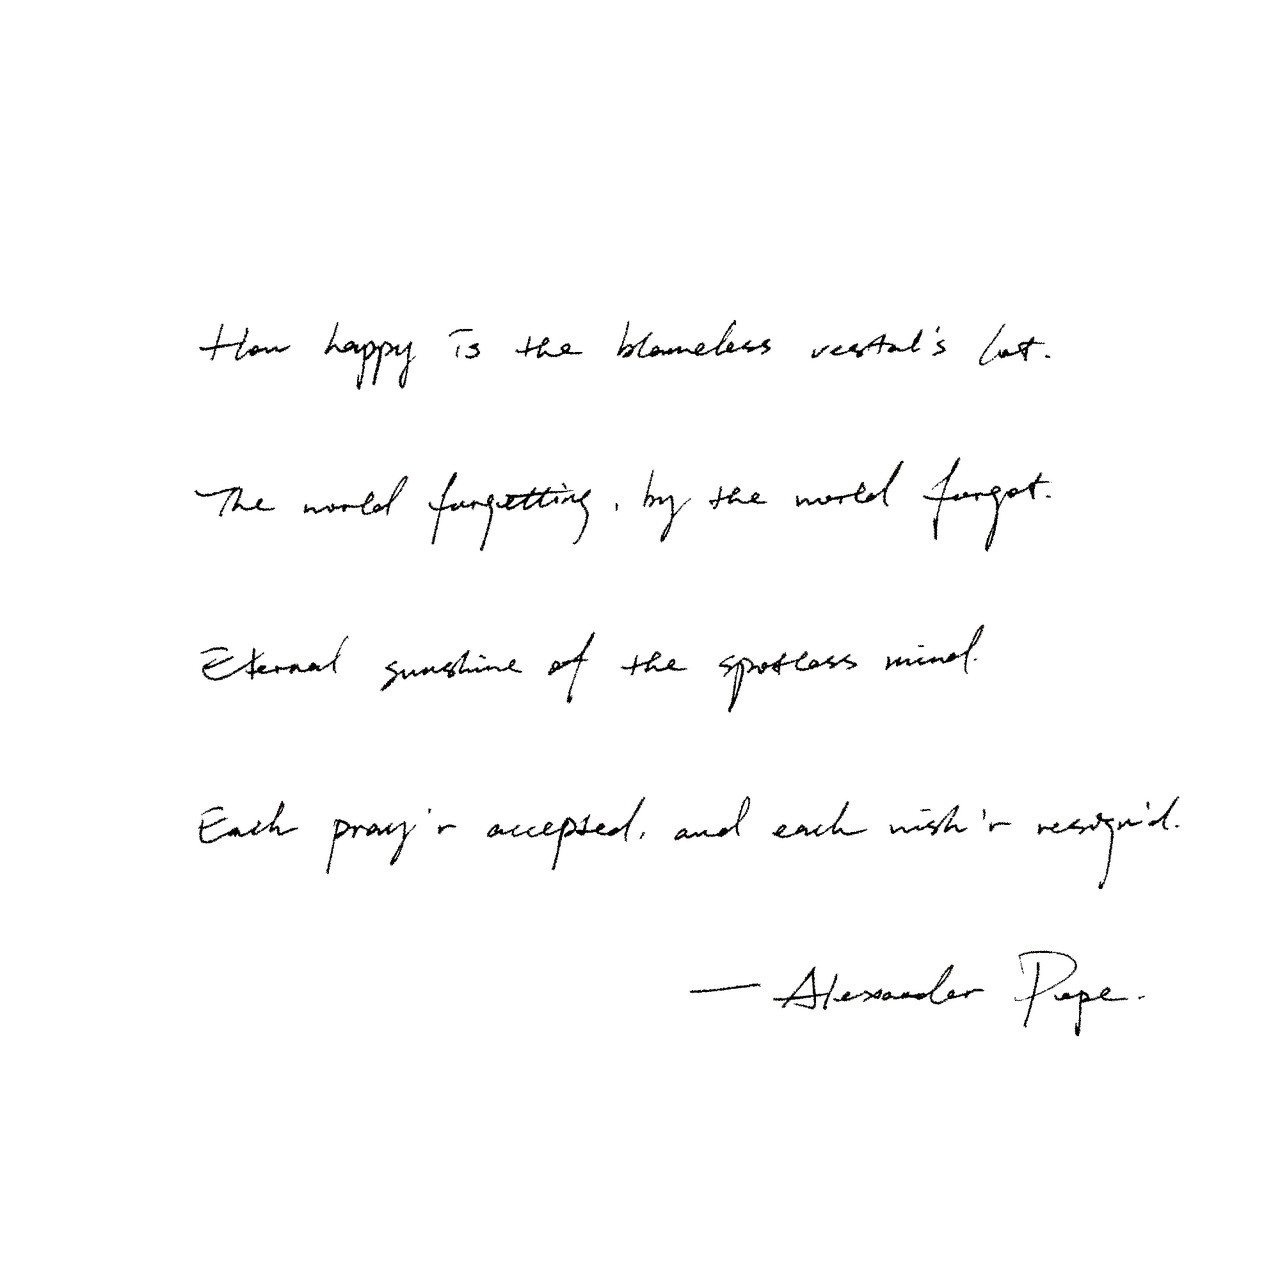 How happy is the blameless vestal's lot.
The world forgetting, by the world forgot.
Eternal sunshine of the spotless mind.
Each pray'r accepted, and each wish'r resign'd.
— Alexander Pope.